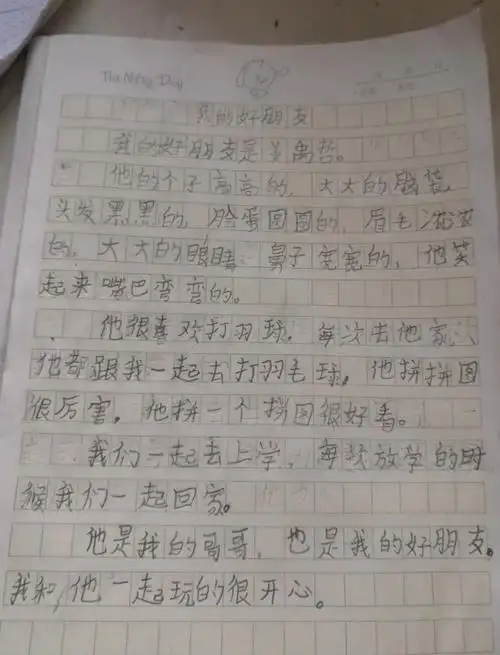 The Nifing Day
我的好朋友
我的好朋友是姜禹哲。
他的个子高高的,大大的服装
头发黑黑的,脸蛋圆圆的,眉毛淡淡
的,大大的眼睛,鼻子宽宽的,他笑
起来嘴巴弯弯的。
他很喜欢打羽球,每次去他家
他都跟我一起去打羽毛球。他拼拼图
很厉害,他拼一个拼图很好看。
我们一起去上学,每次放学的时
候我们一起回家。
他是我的哥哥,也是我的好朋友。
我和他一起玩的很开心。